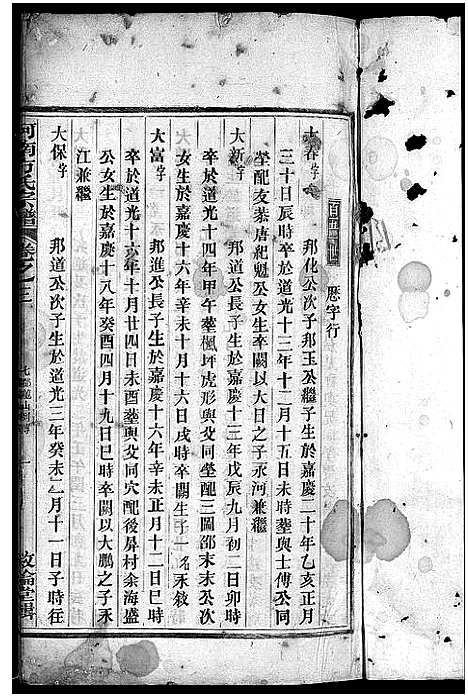 歷字行
大春字 邦化公次子邦玉公繼子生於嘉慶二十年乙亥正月
三十日辰時卒於道光十三年十二月十五日未時塟與士傳公同
塋配友棻唐紀魁公女生卒闕以大日之子永河兼繼
大新字 邦道公長子生於嘉慶十三年戊辰九月初二日卯時
卒於道光十四年甲午塟楓坪虎形與父同塋配三圖邵末末公次
女生於嘉慶十六年辛未十月十六日戌時卒闕生子一名永敘
大富字 邦進公長子生於嘉慶十六年辛未正月十二日巳時
卒於道光十六年十月廿四日未酉塟與父同穴配後屏村余海盛
公女生於嘉慶十八年癸酉四月十九日巳時卒闕以大鵬之子永
江兼繼
大保字 邦道公次子生於道光三年癸未二月十一日子時往
河南方氏宗譜 卷之三
敦倫堂輯